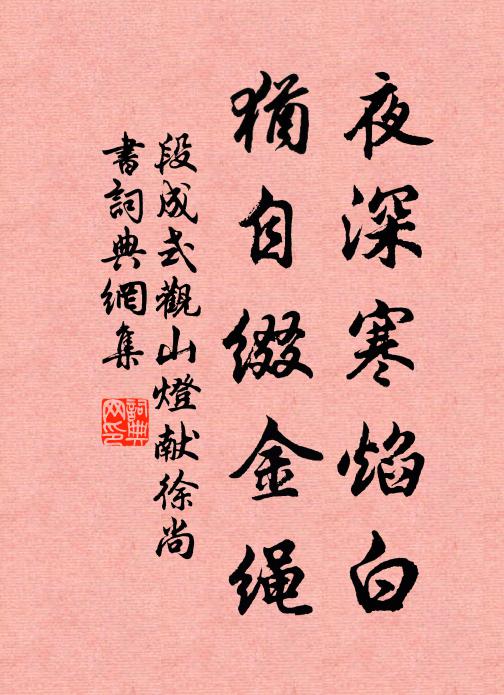 夜深寒焰白
猶自缀金绳
段成式觀山燈献徐尚
書詞典網集
詞典網印